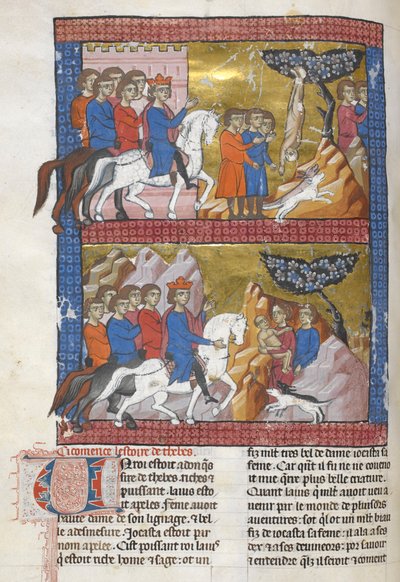 Ci comence lestoire de thebes.
Un roi estoit adonqs
en thebes riches &
puissant. laius esto
it apeles. feme auoit
haute dame de son lignage, & bel
le a desmesure. Iocasta estoit par
nom apelee. Cist puissant roi laius
qi estoit riche home & sage: ot un
fiz mlt tres bel de dame iocasta sa
feme. Car qnt il fu ne ne couent
mie querre plus belle creature.
Quant laius q mlt auoit uen a
uenir par le monde de plusors
auentures: sot qlot un mlt biau
fiz de iocasta sa feme: il ala a ses
dex & a ses deuineors: por sauoir
& entendre qi il seroit & coment